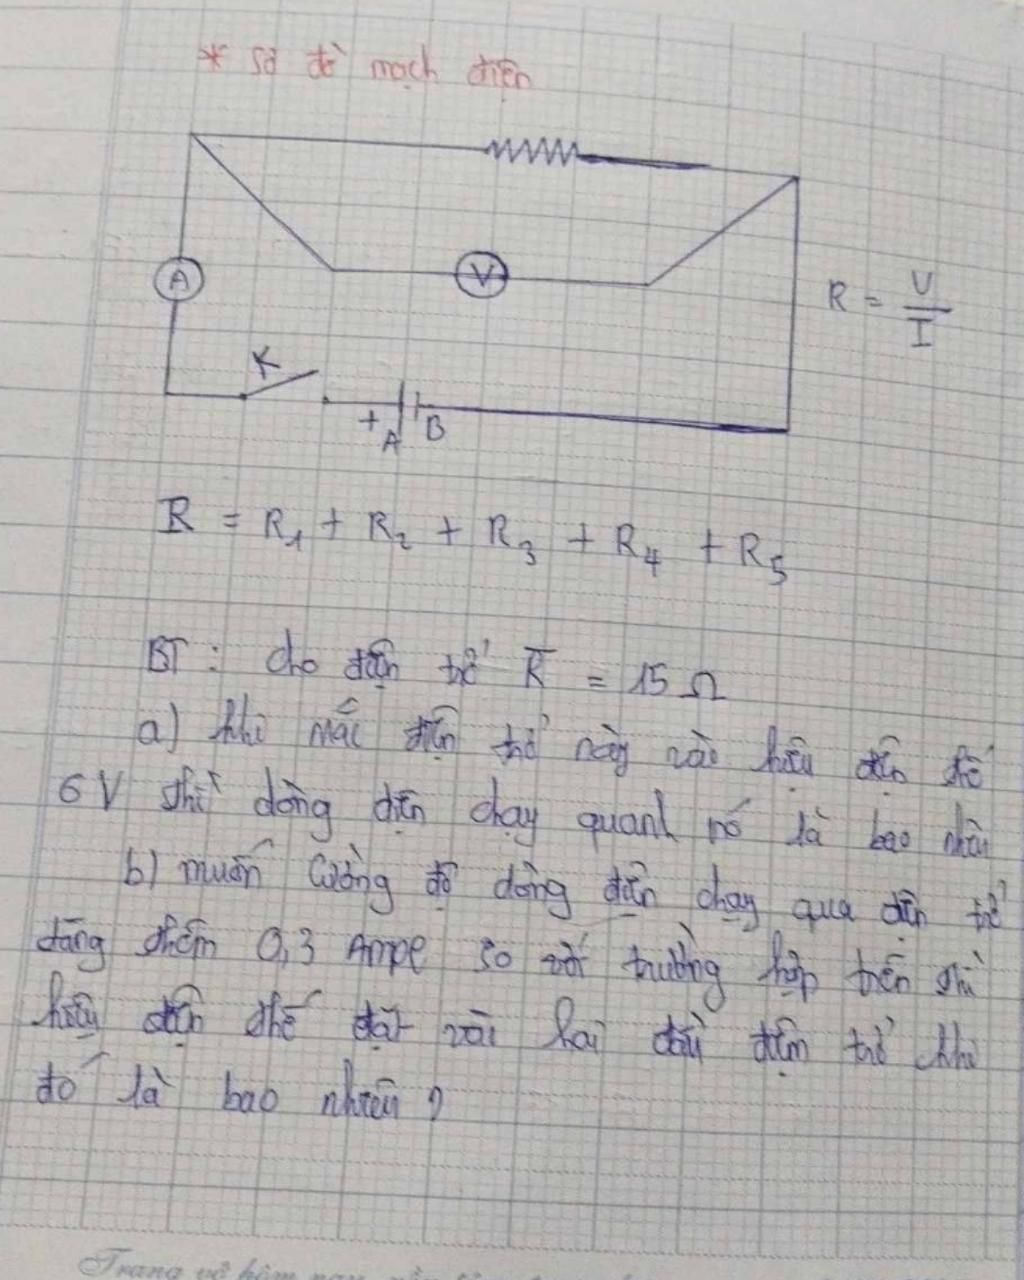 * Sơ đồ mạch điện
A
V
R = U/I
K
+ A B
R = R₁ + R₂ + R₃ + R₄ + R₅
BT : cho điện trở R = 15 Ω
a) khi mắc điện trở này vào hiệu điện thế
6V thì dòng điện chạy quanh nó là bao nhiêu
b) muốn cường độ dòng điện chạy qua điện trở
tăng thêm 0,3 Ampe so với trường hợp trên thì
hiệu điện thế đặt vào hai đầu điện trở khi
đó là bao nhiêu ?